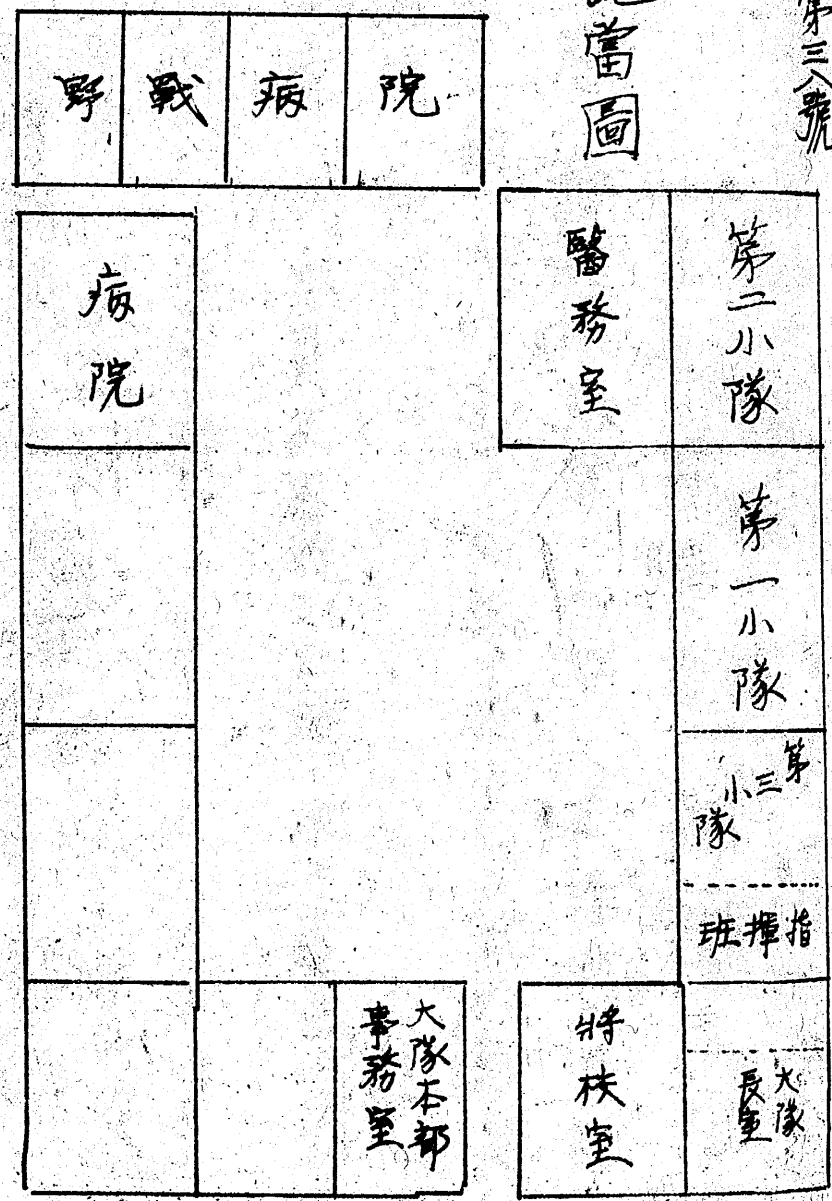 第三八號
當圖
野戰病院
病院
醫務室
第二小隊
第一小隊
第三小隊
指揮班
大隊長室
將校室
大隊本部
事務室